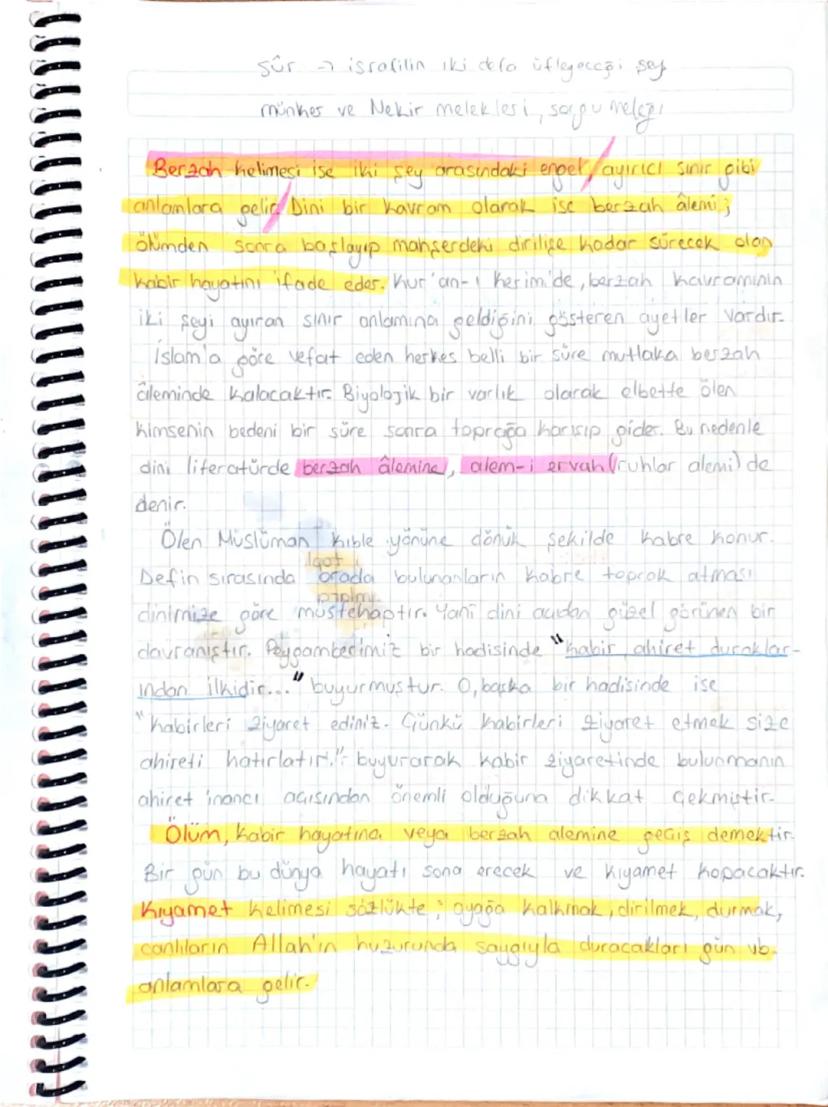 sûr → israfilin iki defa üfleyeceği şey
münker ve Nekir melekleri, sorgu meleği
Berzah kelimesi ise iki şey arasındaki engel / ayırıcı sınır gibi
anlamlara gelir / Dini bir kavram olarak ise berzah âlemi;
ölümden sonra başlayıp mahşerdeki dirilişe kadar sürecek olan
kabir hayatını ifade eder. Kur'an-ı Kerim'de, berzah kavramının
iki şeyi ayıran sınır anlamına geldiğini gösteren ayetler vardır.
İslam'a göre vefat eden herkes belli bir süre mutlaka berzah
âleminde kalacaktır. Biyolojik bir varlık olarak elbette ölen
kimsenin bedeni bir süre sonra toprağa karışıp gider. Bu nedenle
dini literatürde berzah âlemine, alem-i ervah (ruhlar alemi) de
denir.
Ölen Müslüman kıble yönüne dönük şekilde kabre konur.
Defin sırasında orada bulunanların kabre toprak atması
dinimize göre müstehaptır. Yani dini açıdan güzel görünen bir
davranıştır. Peygamberimiz bir hadisinde "kabir ahiret duraklar-
ından ilkidir..." buyurmuştur. O, başka bir hadisinde ise
"kabirleri ziyaret ediniz. Çünkü kabirleri ziyaret etmek size
ahireti hatırlatır." buyurarak kabir ziyaretinde bulunmanın
ahiret inancı açısından önemli olduğuna dikkat çekmiştir.
Ölüm, kabir hayatına veya berzah alemine geçiş demektir.
Bir gün bu dünya hayatı sona erecek ve kıyamet kopacaktır.
Kıyamet kelimesi sözlükte; ayağa kalkmak, dirilmek, durmak,
canlıların Allah'ın huzurunda saygıyla duracakları gün vb.
anlamlara gelir.